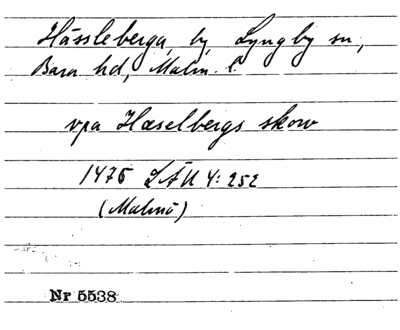 Hässleberga, by, Lyngby sn,
Bara hd, Malm. l.
vpa Hæselbergs skow
1476 LÄU 4: 252
(Malmö)
Nr 5538